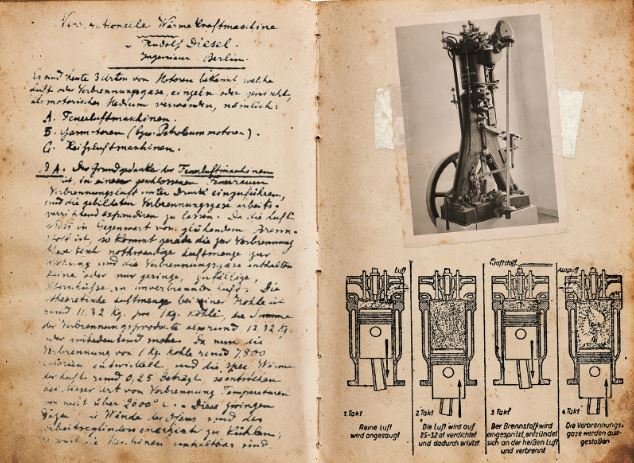 rationelle Wärmekraftmaschine
v. Rudolf Diesel.
Ingenieur. Berlin.
Es sind heute 3 Arten von Motoren bekannt welche
Luft oder Verbrennungsgase, einzeln oder gemischt,
als motorisches Medium verwenden, nämlich:
A. Feuerluftmaschinen.
B. Gasmotoren (bzw. Petroleummotoren).
C. Heißluftmaschinen.
A. Der Grundgedanke der Feuerluftmaschinen
ist, in einem geschlossenen
Verbrennungsluft unter Druck einzuführen,
und die gebildeten Verbrennungsgase arbeits-
verrichtend expandiren zu lassen. Da die Luft
stets in Gegenwart von glühendem Brenn-
stoff ist, so kommt gerade die zur Verbrennung
nothwendige Luftmenge zur
und die Verbrennungsgase enthalten
keine oder nur geringe, zufällige
an unverbrannter Luft. Die
theoretische Luftmenge bei reiner Kohle ist
rund 11,32 kg. pro 1 kg. Kohle, die Summe
der Verbrennungsproducte also rund 12,32 kg.
oder mehr. Da nun die
Verbrennung von 1 kg. Kohle rund 7,800
entwickelt und die spec. Wärme
der Luft rund 0,25 beträgt, so entstehen
bei dieser Art von Verbrennung Temperaturen
von weit über 2000° C. Diese zwingen
dazu, die Wände des Ofens und des
Arbeitscylinders zu kühlen,
Luft
Kraftstoff
Auspuff
1. Takt
Reine Luft
wird angesaugt
2. Takt
Die Luft wird auf
25-32 at verdichtet
und dadurch erhitzt
3. Takt
Der Brennstoff wird
eingespritzt, entzündet
sich an der heißen Luft
und verbrennt
4. Takt
Die Verbrennungs-
gase werden aus-
gestoßen